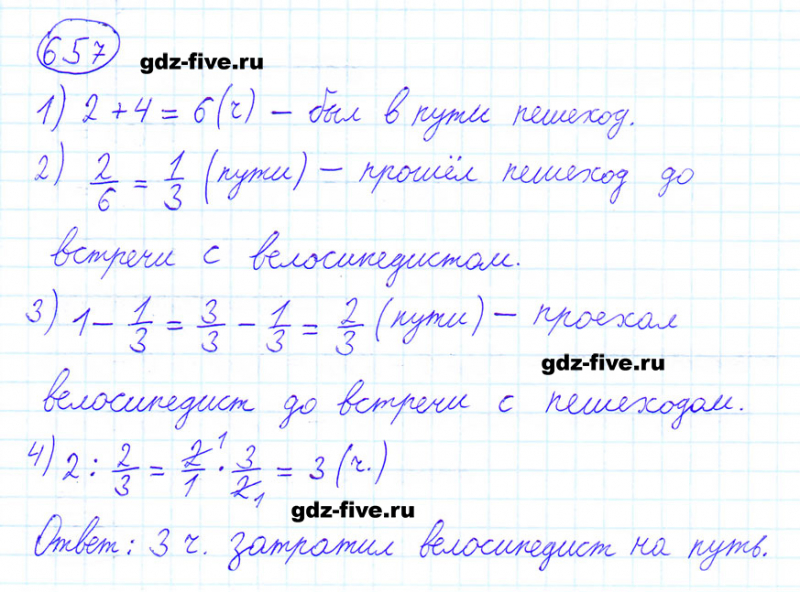 657
gdz-five.ru
1) 2 + 4 = 6 (ч) – был в пути пешеход.
2) 2/6 = 1/3 (пути) – прошёл пешеход до
встречи с велосипедистом.
3) 1 – 1/3 = 3/3 – 1/3 = 2/3 (пути) – проехал
gdz-five.ru
велосипедист до встречи с пешеходом.
4) 2 : 2/3 = 2/1 1 · 3/2 1 = 3 (ч.)
gdz-five.ru
Ответ: 3 ч. затратил велосипедист на путь.